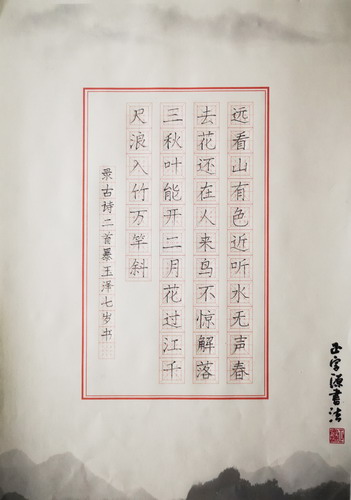 远看山有色近听水无声春
去花还在人来鸟不惊解落
三秋叶能开二月花过江千
尺浪入竹万竿斜
录古诗二首暴玉泽七岁书
正字源书法